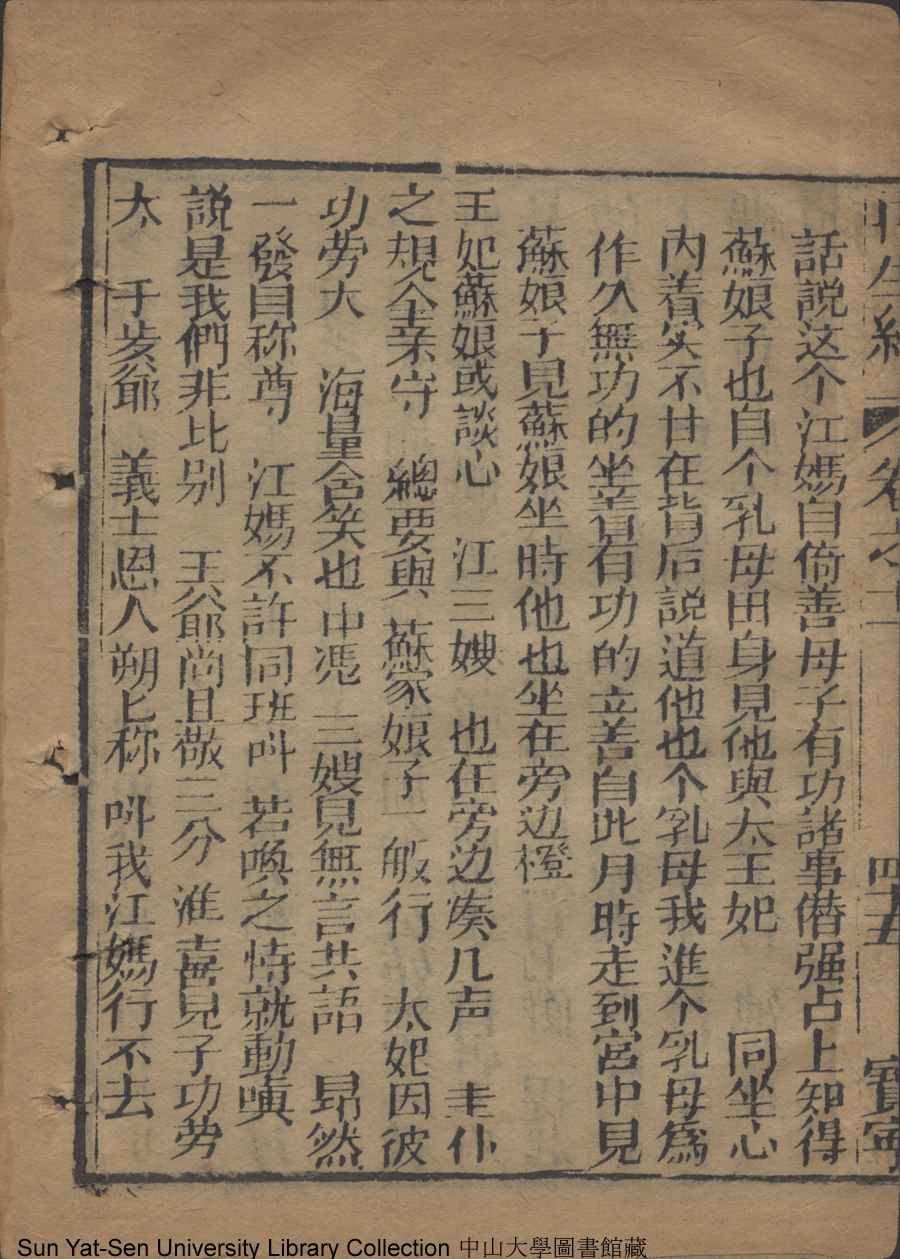 再生緣 卷之十一 四十五 寶寧
話說这个江媽自倚善母子有功諸事僣强占上知得
蘇娘子也自个乳母田身見他與太王妃 同坐心
内着实不甘在背后説道他也个乳母我進个乳母為
作久無功的坐着有功的立善自此月時走到宮中見
蘇娘子見蘇娘坐時他也坐在旁边橙
王妃蘇娘或談心 江三嫂 也在旁边凑几声 圭仆
之規全耒守 總要與 蘇家娘子一般行 太妃因彼
功劳大 海量含笑也中憑 三嫂見無言共語 昻然
一發自称尊 江媽不許同班呌 若喚之時就動嗔
説是我們非比别 王爺尚且敬三分 淮喜見子功劳
太 千岁爺 義士恩人朔匕称 呌我江媽行不去
Sun Yat-Sen University Library Collection 中山大學圖書館藏